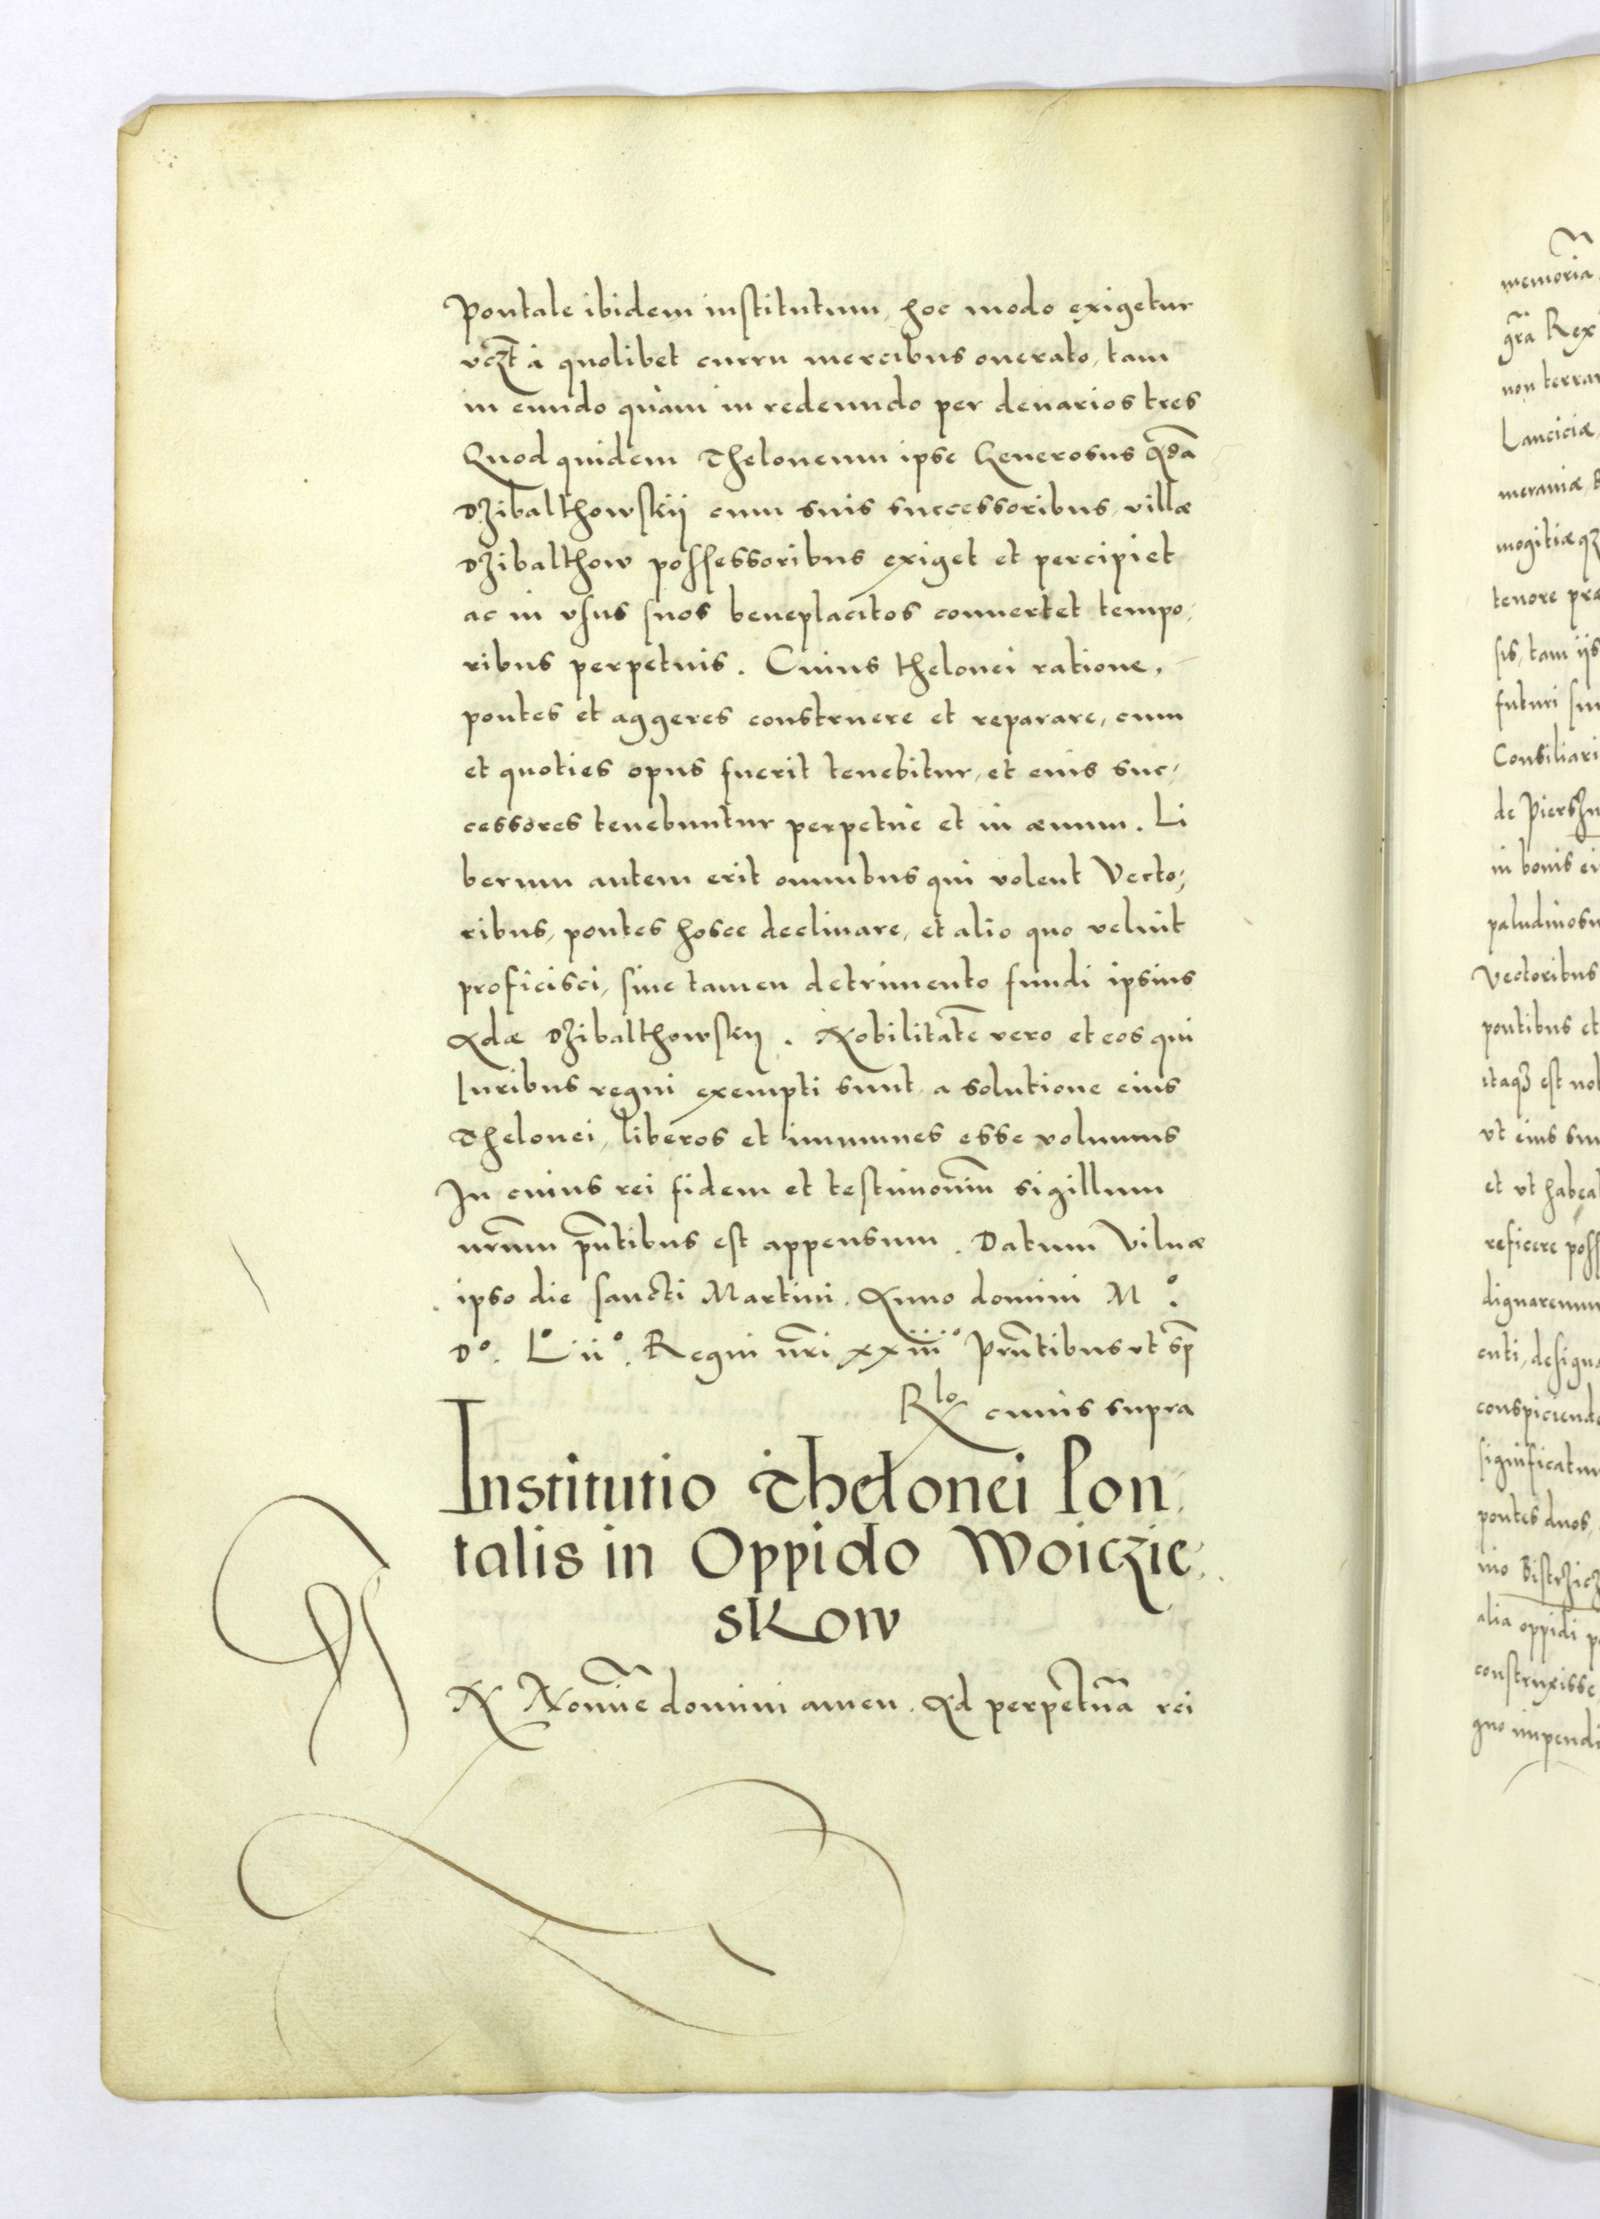 Pontale ibidem institutum, hoc modo exigetur
vczt a quolibet curru mercibus onerato, tam
in eundo quàm in redeundo per denarios tres
Quod quidem Theloneum ipse Generosus Adã
Dzibalthowskij cum suis successoribus, villæ
Dzibalthow possessoribus exiget et percipiet
ac in vsus suos beneplacitos conuertet tempo,
ribus perpetuis. Cuius thelonei ratione,
pontes et aggeres construere et reparare, cum
et quoties opus fuerit tenebitur, et eius suc,
cessores tenebuntur perpetue et in æuum. Li
berum autem erit omnibus qui volent Vecto,
ribus, pontes hosce declinare, et alio quo velint
proficisci, sine tamen detrimento fundi ipsius
Adæ Dzibalthowskij. Nobilitatẽ vero et eos qui
Iuribus regni exempti sunt a solutione eius
Thelonei, liberos et immunes esse volumus
In cuius rei fidem et testimoniũ sigillum
nr̃um pñtibus est appensum. Datum Vilnæ
ipso die sancti Martini. Anno domini Mº.
Dº. Lº iiº. Regni nr̃i xxiiiº Prñtibus vt sp̃
Rlo cuius supra
Institutio Thelonei Pon,
talis in Oppido Woiczie,
skow
IN Nomĩe domini amen. Ad perpetuã rei
memoria
gr̃a Rex
non terrar
Lanciciæ,
meraniæ,
mogitiæqз
tenore præ
sis, tam iis
futuri
Consiliari
de
in bonis ei
paludinosu
Vectoribus
pontibus et
itaqз est
vt eius
et vt habeat
reficere poss
dignaremur
enti, designa
conspiciendo
significatum
pontes duos,
nio
alia oppidi
construxisse,
gno impendi